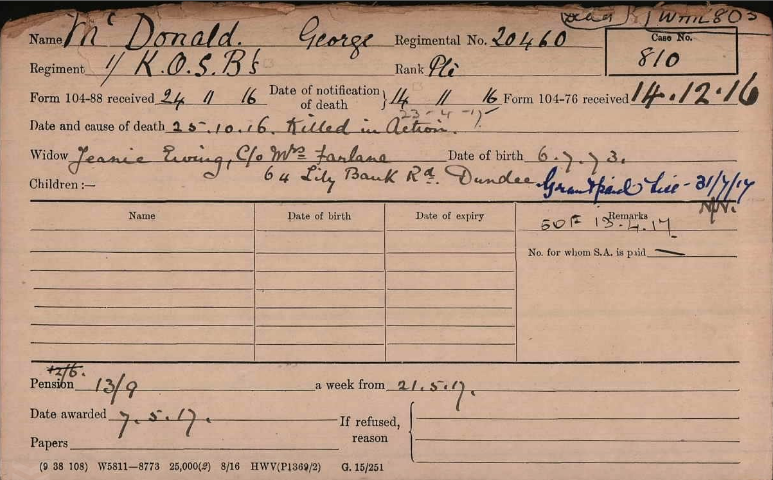 WMR803
Name Mc Donald. George Regimental No. 20460 Case No.
810
Regiment 1/ K.O.S.B's Rank Pte
Form 104-88 received 24 11 16 Date of notification of death } 14 11 16 Form 104-76 received 14.12.16
23-4-17
Date and cause of death 25.10.16. Killed in Action.
Widow Jeanie Ewing, C/o Mrs Farlane Date of birth 6.7.73.
64 Lily Bank Rd. Dundee
Children:— Grant paid - 31/7/17
Name Date of birth Date of expiry Remarks
13.4.17
No. for whom S.A. is paid —
12/6.
Pension 13/9 a week from 21.5.17.
Date awarded 7.5.17. If refused, reason
Papers
(9 38 108) W5811—8773 25,000(2) 8/16 HWV(P1369/2) G. 15/251